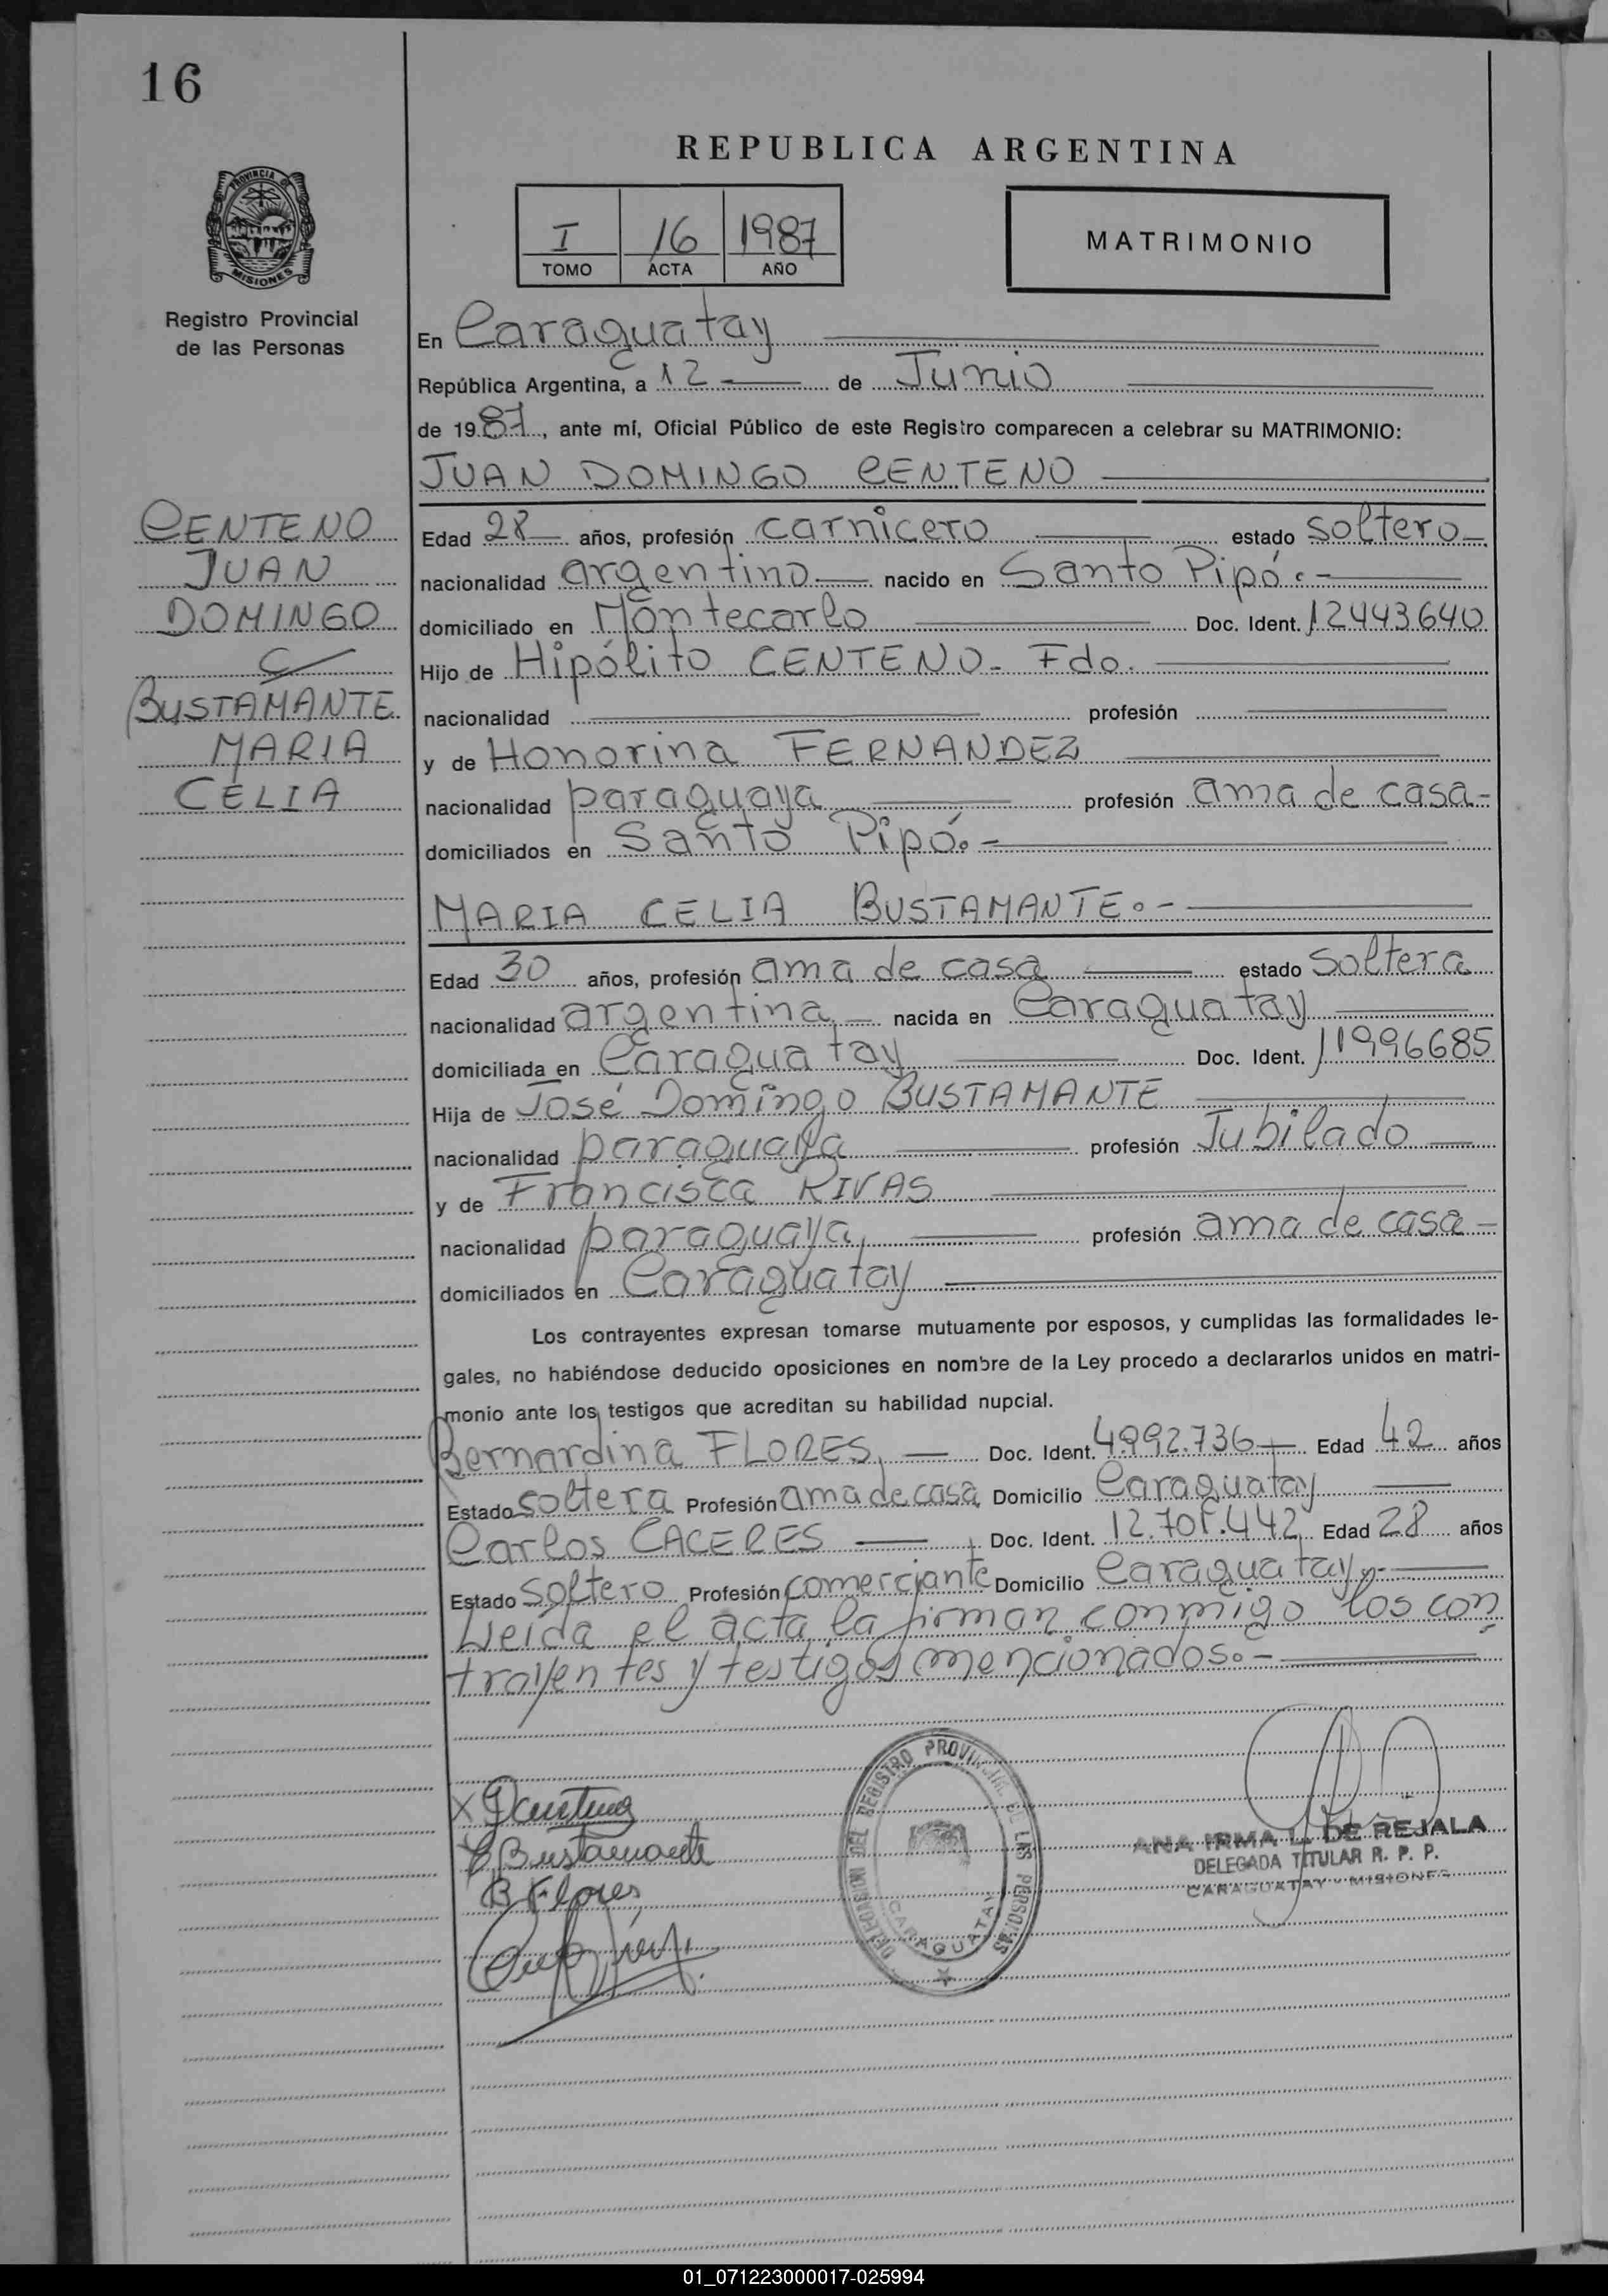 16
REPUBLICA ARGENTINA
PROVINCIA DE
MISIONES
I 16 1987
TOMO ACTA AÑO
MATRIMONIO
Registro Provincial
de las Personas
En Caraguatay
República Argentina, a 12 de Junio
de 1987, ante mí, Oficial Público de este Registro comparecen a celebrar su MATRIMONIO:
JUAN DOMINGO CENTENO
CENTENO
JUAN
DOMINGO
C
BUSTAMANTE
MARIA
CELIA
Edad 28 años, profesión carnicero estado soltero
nacionalidad argentino nacido en Santo Pipó.-
domiciliado en Montecarlo Doc. Ident. 12443640
Hijo de Hipólito CENTENO - Fdo.
nacionalidad profesión
y de Honorina FERNANDEZ
nacionalidad paraguaya profesión ama de casa-
domiciliados en Santo Pipó.-
MARIA CELIA BUSTAMANTE.-
Edad 30 años, profesión ama de casa estado soltera
nacionalidad argentina nacida en Caraguatay
domiciliada en Caraguatay Doc. Ident. 11996685
Hija de José Domingo BUSTAMANTE
nacionalidad paraguaya profesión Jubilado
y de Francisca RIVAS
nacionalidad paraguaya profesión ama de casa-
domiciliados en Caraguatay
Los contrayentes expresan tomarse mutuamente por esposos, y cumplidas las formalidades le-
gales, no habiéndose deducido oposiciones en nombre de la Ley procedo a declararlos unidos en matri-
monio ante los testigos que acreditan su habilidad nupcial.
Bernardina FLORES Doc. Ident. 4.992.736 Edad 42 años
Estado soltera Profesión ama de casa Domicilio Caraguatay
Carlos CACERES Doc. Ident. Edad 28 años
Estado soltero Profesión comerciante Domicilio Caraguatay.-
Leída el acta la firman conmigo los con
trayentes y testigos mencionados.-
X
Bustamante
B Flores
DELEGACION DEL REGISTRO PROVINCIAL DE LAS PERSONAS
CARAGUATAY
ANA IRMA L. DE REJALA
DELEGADA TITULAR R. P. P.
CARAGUATAY - MISIONES
01_071223000017-025994